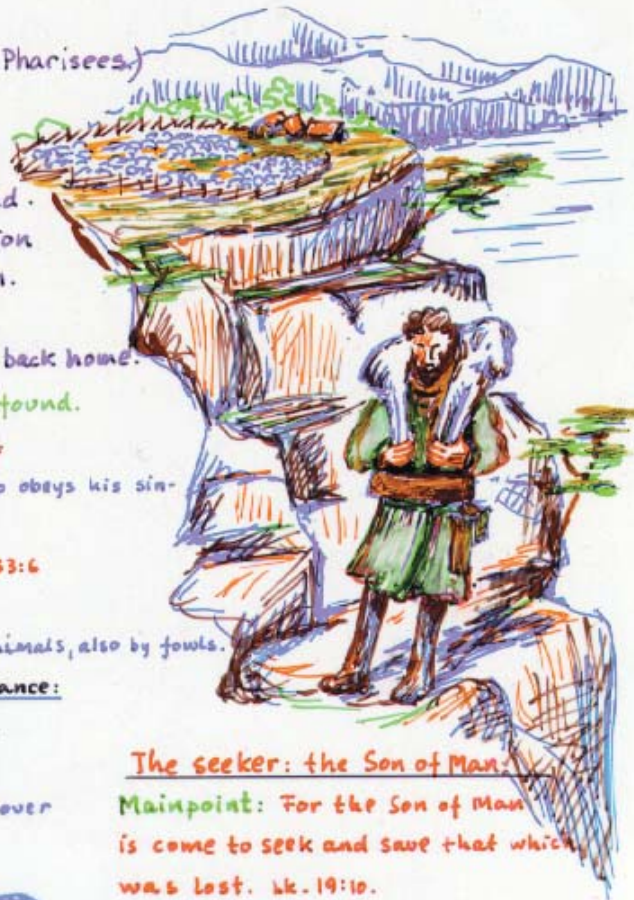 Pharisees.)
d.
on
back home.
found.
obeys his sin-
53:6
nimals, also by fowls.
ance:
over
The seeker: the Son of Man:
Mainpoint: For the Son of Man
is come to seek and save that which
was lost. Lk. 19:10.